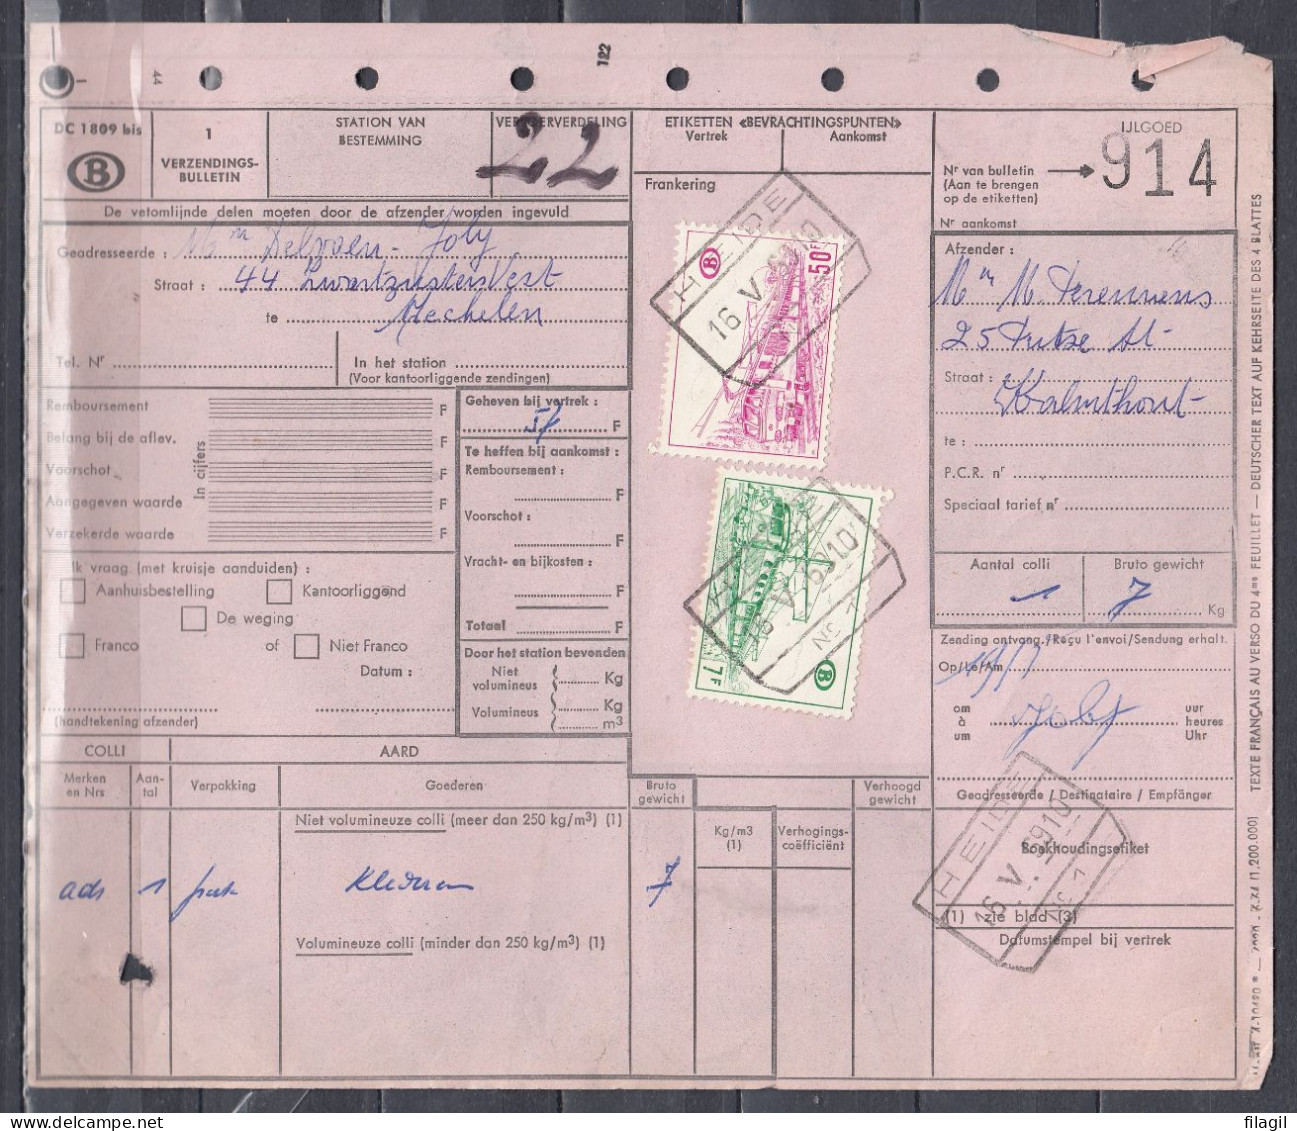 44
122
DC 1809 bis
B
1
VERZENDINGS-
BULLETIN
STATION VAN
BESTEMMING
22
ETIKETTEN «BEVRACHTINGSPUNTEN»
Vertrek
Aankomst
IJLGOED
Nr van bulletin
(Aan te brengen
op de etiketten)
914
Nr aankomst
De vetomlijnde delen moeten door de afzender worden ingevuld
Geadresseerde : Mr Delvoen - Joly
Straat : 44 Zwartzustersvest
te Mechelen
Tel. Nr
In het station
(Voor kantoorliggende zendingen)
Frankering
HEIDE
16 V 6910
50F
B
HEIDE
16 V 6910
Nr 1
7F
B
Afzender :
Mr M.
25
Straat : Kalmthout
te :
P.C.R. nr
Speciaal tarief nr
Aantal colli
Bruto gewicht
1
7 Kg
Remboursement F
Belang bij de aflev. F
Voorschot F
Aangegeven waarde F
Verzekerde waarde F
In cijfers
Geheven bij vertrek :
57 F
Te heffen bij aankomst :
Remboursement :
F
Voorschot :
F
Vracht- en bijkosten :
F
Totaal F
Ik vraag (met kruisje aanduiden) :
Aanhuisbestelling
Kantoorliggend
De weging
Franco
of
Niet Franco
Datum :
(handtekening afzender)
Door het station bevonden
Niet
volumineus
Kg
Volumineus
Kg
m3
Zending ontvang./Reçu l'envoi/Sendung erhalt.
Op/Le/Am
om
à
um
uur
heures
Uhr
Geadresseerde / Destinataire / Empfänger
Boekhoudingsetiket
(1) zie blad (3)
Datumstempel bij vertrek
HEIDE
16 V 6910
Nr 1
COLLI
AARD
Merken
en Nrs
Aan-
tal
Verpakking
Goederen
Bruto
gewicht
Kg/m3
(1)
Verhogings-
coëfficiënt
Verhoogd
gewicht
Niet volumineuze colli (meer dan 250 kg/m3) (1)
ads 1 pak Klederen 7
Volumineuze colli (minder dan 250 kg/m3) (1)
TEXTE FRANÇAIS AU VERSO DU 4me FEUILLET — DEUTSCHER TEXT AUF KEHRSEITE DES 4 BLATTES
filagil